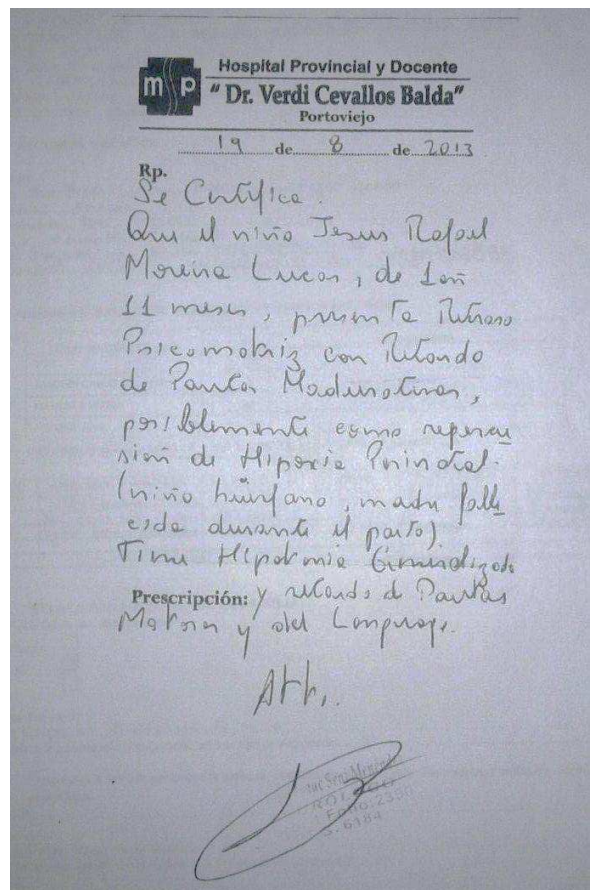 m s p
Hospital Provincial y Docente
"Dr. Verdi Cevallos Balda"
Portoviejo
19 de 8 de 2013
Rp.
Se Certifica.
Que el niño Jesus Rafael
Moreira Lucas, de 1 año
11 meses, presenta Retraso
Psicomotriz con Retardo
de Pautas Madurativas,
posiblemente como repercu
sion de Hipoxia Perinatal.
(niño huérfano, madre falle
cida durante el parto)
Tiene Hipotonia Generalizada
Prescripción: y retardo de Pautas
Motoras y del Lenguaje.
Att.
Folio: 2330